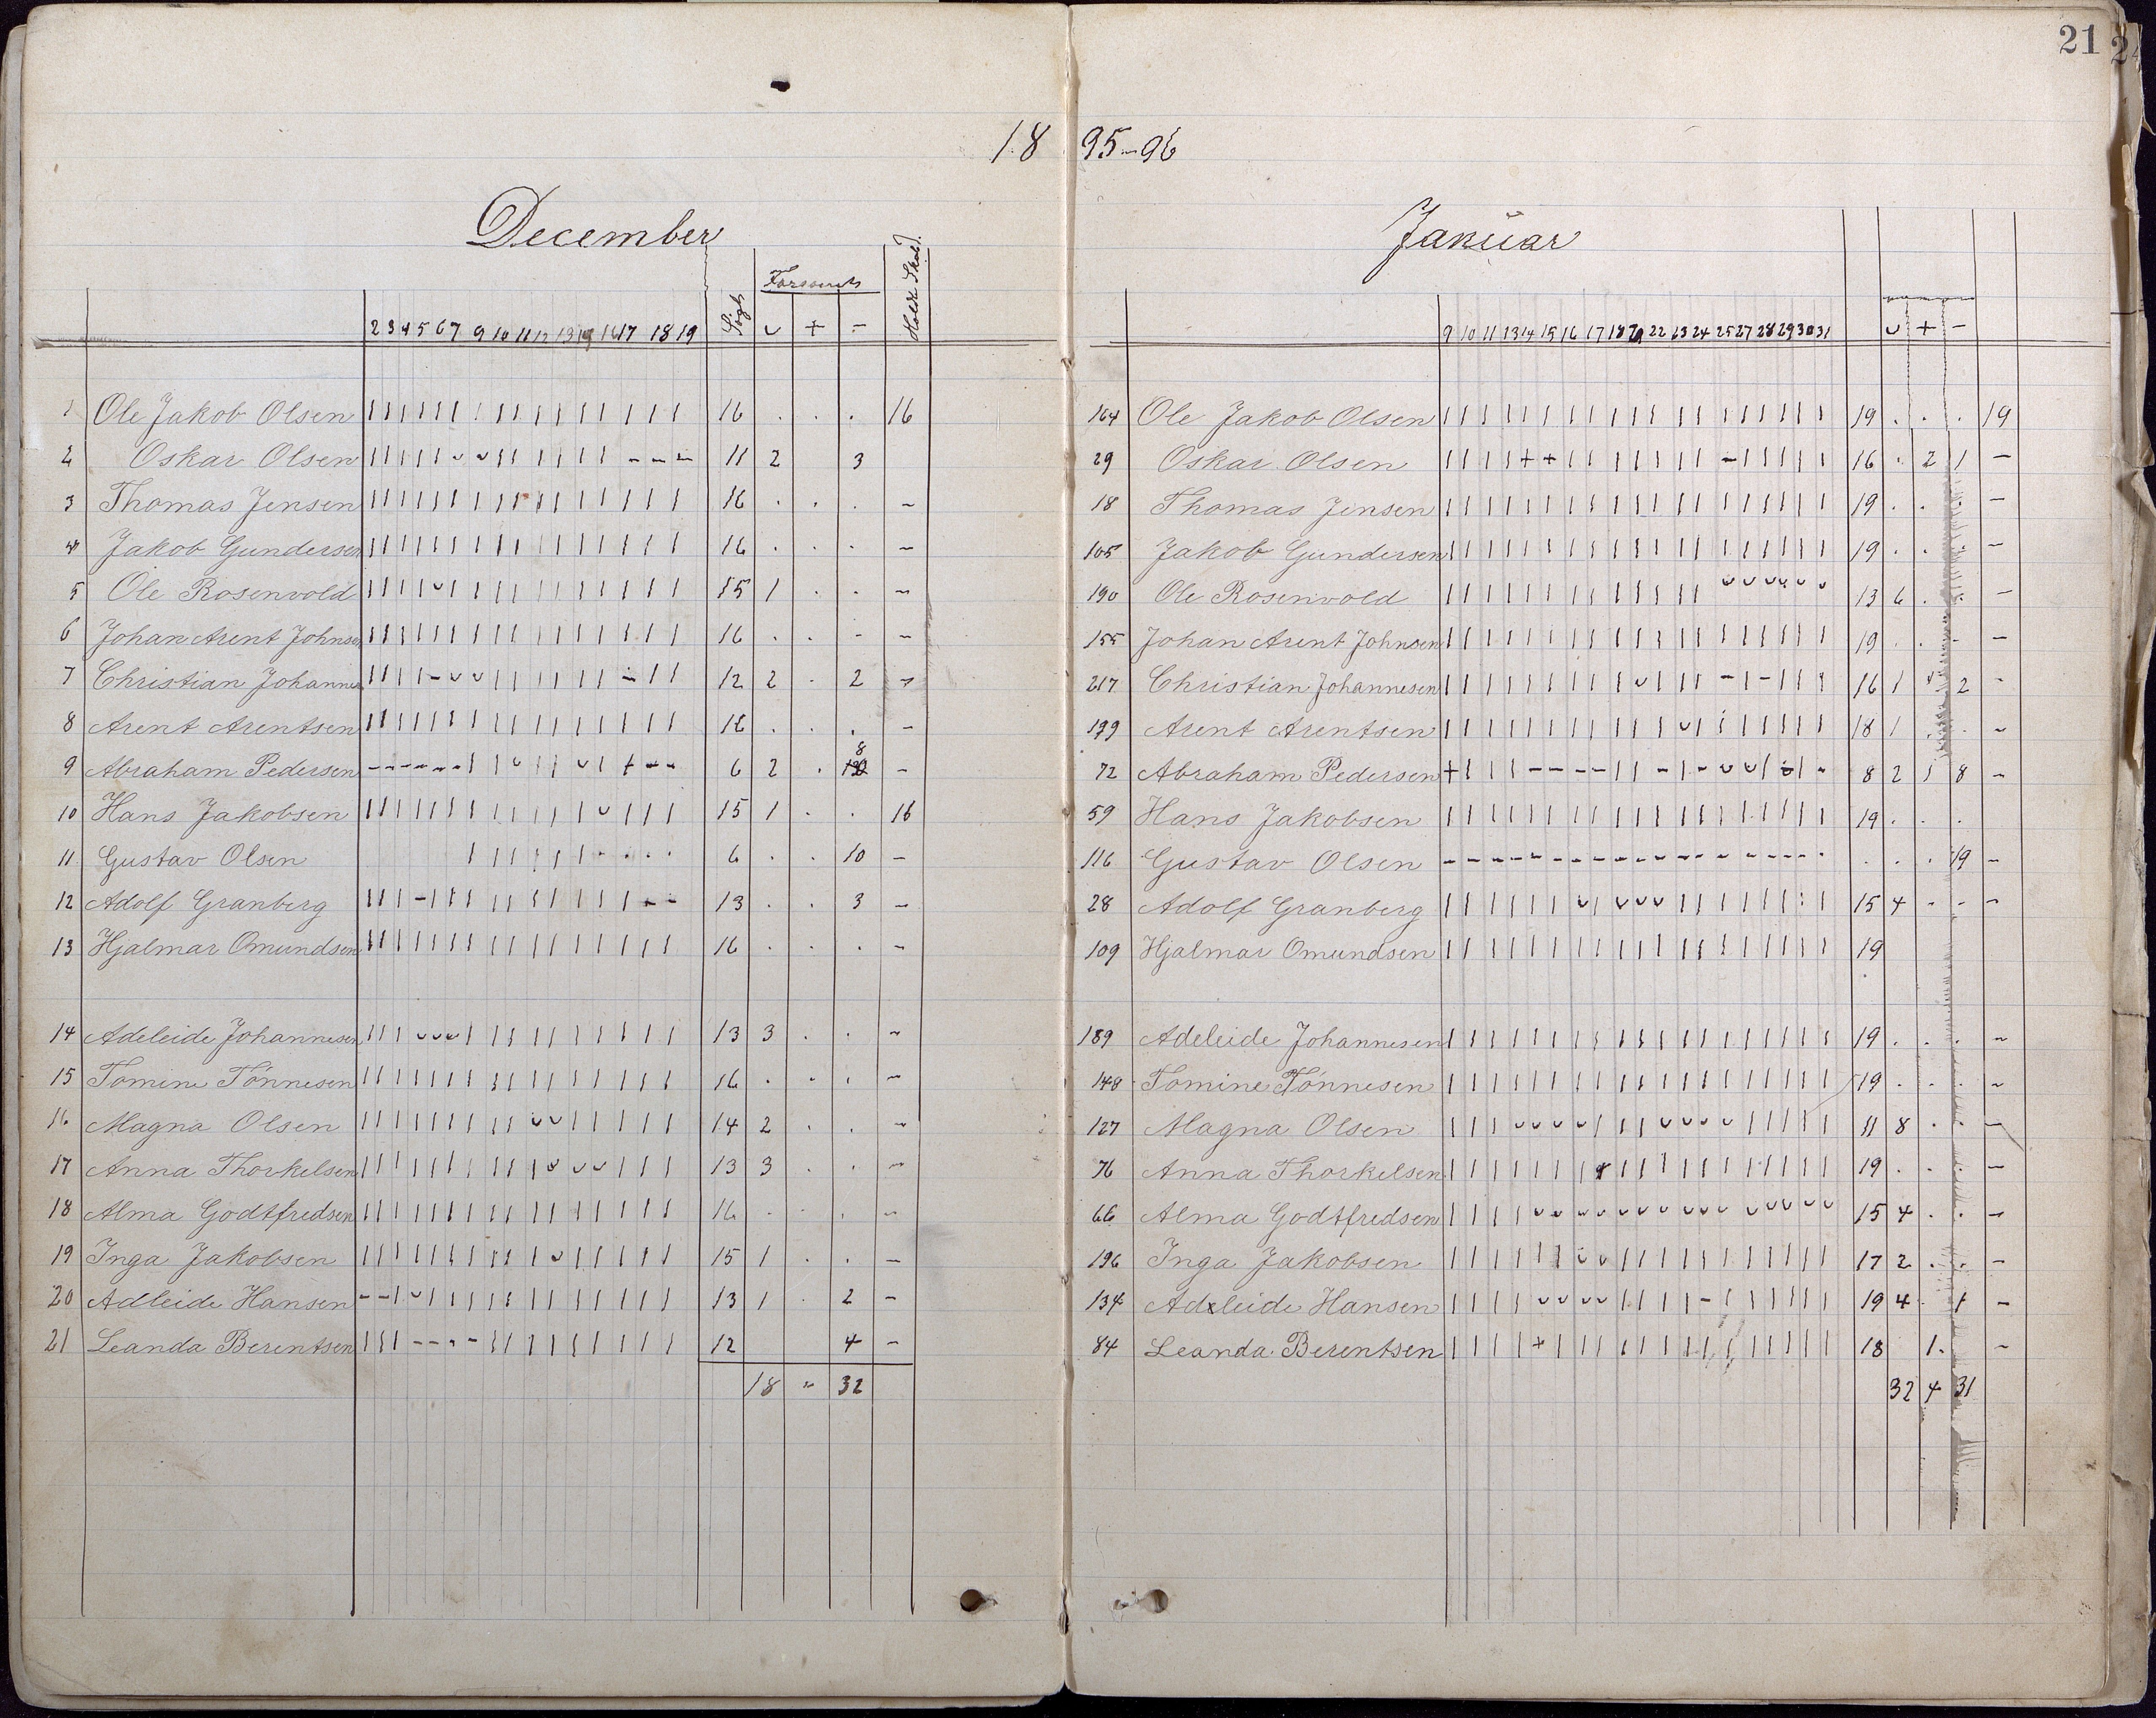 21
18 95-96
December
Forsømt
2 3 4 5 6 7 9 10 11 12 13 14 16 17 18 19 Søgt ᴗ + − Holdt Skole
1 Ole Jakob Olsen 16 . . . 16
2 Oskar Olsen 11 2 3
3 Thomas Jensen 16 . . . −
4 Jakob Gundersen 16 . . . −
5 Ole Rosenvold 15 1 . . −
6 Johan Arent Johnsen 16 . . - −
7 Christian Johannes 12 2 . 2 −
8 Arent Arentsen 16 . . . −
9 Abraham Pedersen 6 2 . 8 −
10 Hans Jakobsen 15 1 . . 16
11 Gustav Olsen 6 . . 10 −
12 Adolf Granberg 13 . . 3 −
13 Hjalmar Omundsen 16 . . . −
14 Adeleide Johannesen 13 3 . . −
15 Tomine Tönnesen 16 . . . −
16 Magna Olsen 14 2 . . −
17 Anna Thorkelsen 13 3 . . −
18 Alma Godtfredsen 16 . . . −
19 Inga Jakobsen 15 1 . . −
20 Adleide Hansen 13 1 . 2 −
21 Leanda Berentsen 12 4 −
18 " 32
Januar
9 10 11 13 14 15 16 17 18 20 22 23 24 25 27 28 29 30 31 ᴗ + −
164 Ole Jakob Olsen 19 . . . 19
29 Oskar Olsen 16 . 2 1 −
18 Thomas Jensen 19 . . . −
105 Jakob Gundersen 19 . . . −
190 Ole Rosenvold 13 6 . . −
155 Johan Arent Johnsen 19 . . - −
217 Christian Johannesen 16 1 2 −
199 Arent Arentsen 18 1 . . −
72 Abraham Pedersen 8 2 1 8 −
59 Hans Jakobsen 19 . . .
116 Gustav Olsen . . . 19 −
28 Adolf Granberg 15 4 - - −
109 Hjalmar Omundsen 19
189 Adeleide Johannesen 19 . . . −
148 Tomine Tönnesen 19 . . . −
127 Magna Olsen 11 8 . . −
76 Anna Thorkelsen 19 . . . −
66 Alma Godtfredsen 15 4 . . −
196 Inga Jakobsen 17 2 . . −
134 Adeleide Hansen 19 4 . 1 −
84 Leanda Berentsen 18 1. −
32 4 31